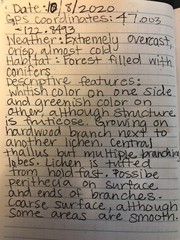 Date: 10/8/2020
GPS coordinates: 47.003
-122.8913
Weather: Extremely overcast,
crisp, almost cold
Habitat: Forest filled with
conifers
Descriptive features:
Whitish color on one side
and greenish color on
other although structure
is fruticose. Growing on
hardwood branch next to
another lichen. Central
thallus but multiple branching
lobes. Lichen is tufted
from holdfast. Possibe
perithecia on surface
and ends of branches.
Coarse surface, although
some areas are smooth.